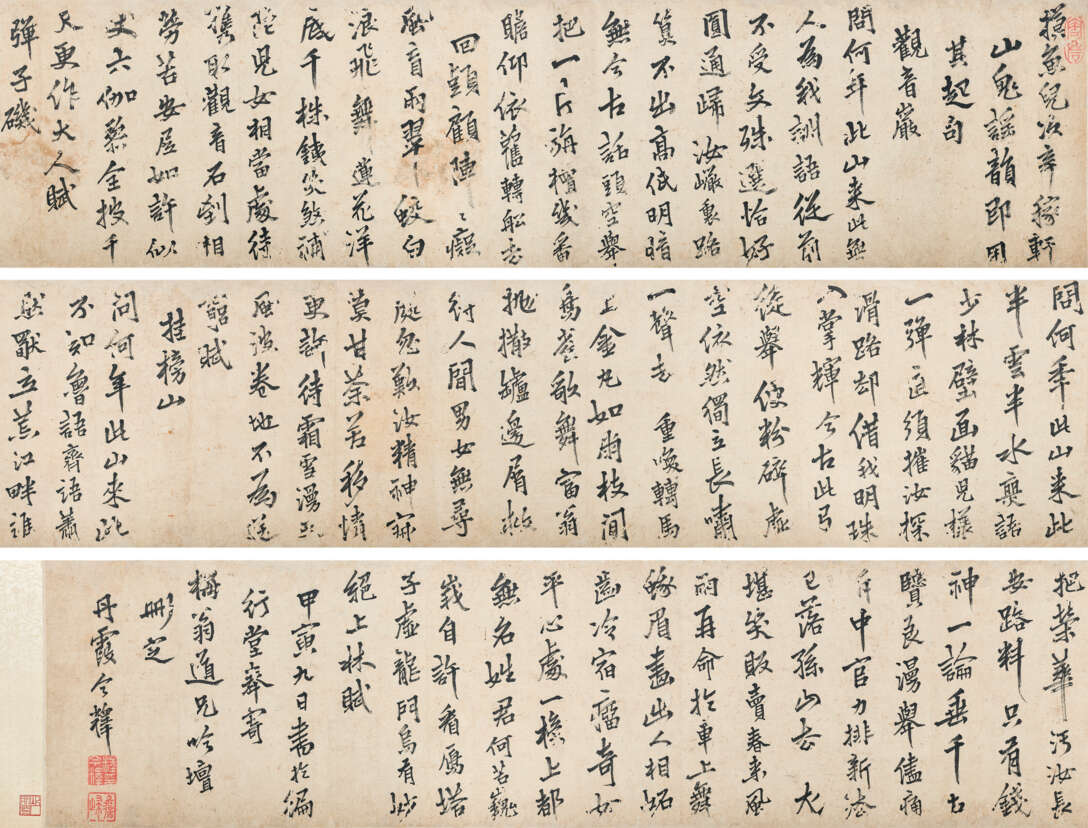 摸魚兒次辛稼軒
山鬼謠韻即用
其起句
觀音巖
問何年此山来此無
人為我訓語從前
不受文殊選恰好
圓通歸汝巖裏路
算不出高低明暗
無今古話頭空舉
把一片旃檀幾番
瞻仰依舊轉船去
回頭顧陣〻癡
風盲雨翠〻鮫白
浪飛舞蓮花洋
底千株鐵笑煞補
陀兒女相當處待
撰取觀音石刻相
勞苦安居如許似
丈六伽黎全披千
尺更作大人賦
彈子磯
問何年此山来此
半雲半水奧語
少林壁面貓兒樣
一彈直須摧汝探
滑路却借我明珠
入掌輝今古此弓
從舉使粉碎虛
空依然獨立長嘯
一聲去 重喚轉馬
上金丸如雨枝間
烏鵲歌舞富翁
拋撒壚邊屑
人間男女無尋
鬼歎汝精神寂
莫甘荼苦移情
更許待霜雪漫天
風浪卷地不為送
窮賦
挂榜山
問何年此山來此
不知魯語齊語蕭
然獸立荒江畔誰
把榮華誤汝長
安路料只有錢
神一論垂千古
賢良漫舉儘痛
中官力排新法
已落孫山去 尤
堪笑販賣春來風
雨再命於車上舞
眉畫出人相妬
齒冷宿瘤奇女
平心處一榜上都
無名姓君何苦巍
峩自許看雁塔
子虛龍門烏有
絕上林賦
甲寅九日書於漏
行堂奉寄
梅翁道兄吟壇
刪定
丹霞今釋